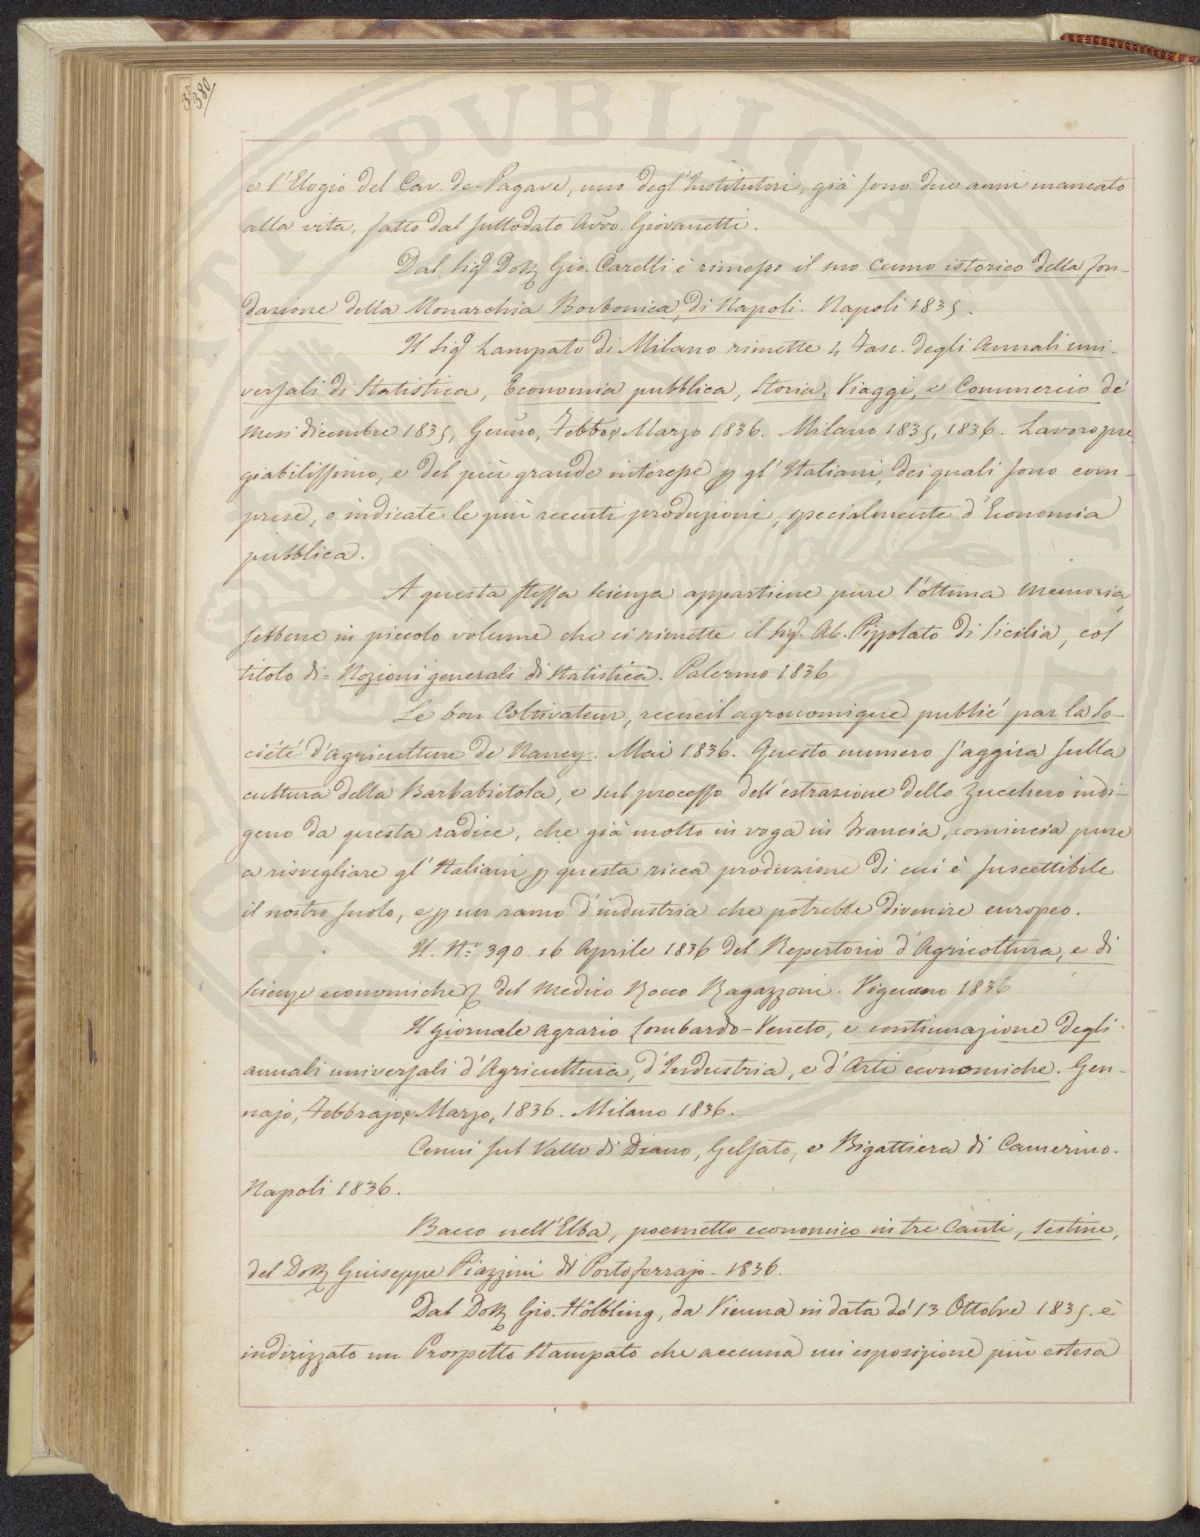 380
e l'Elogio del Cav. de-Pagave, uno degl'Institutori, già sono due anni mancato
alla vita, fatto dal sullodato Avv.o Giovanetti.
Dal Sig.r Dott. Gio. Carelli è rimesso il suo Cenno istorico della fon-
dazione della Monarchia Borbonica, di Napoli. Napoli 1835.
Il Sig.r Lampato di Milano rimette 4 Fasc. degli Annali uni-
versali di Statistica, Economia pubblica, Storia, Viaggi, e Commercio de'
Mesi dicembre 1835, Genn.o, Febb.o e Marzo 1836. Milano 1835, 1836. Lavoro pre
giabilissimo, e del più grande interesse p gl'Italiani, dei quali sono com-
prese, o indicate le più recenti produzioni, specialmente d'Economia
pubblica.
A questa stessa scienza appartiene pure l'ottima Memoria,
sebbene in piccolo volume che ci rimette il Sig.r Ab. Pizzolato di Sicilia, col
titolo di = Nozioni generali di Statistica. Palermo 1836
Le bon Coltivateur, recueil agronomique publié par la So-
ciété d'agriculture de Nancy. Mai 1836. Questo numero s'aggira sulla
cultura della Barbabietola, e sul processo dell'estrazione dello Zucchero indi-
geno da questa radice, che già molto in voga in Francia, comincia pure
a risvegliare gl'Italiani p questa ricca produzione di cui è suscettibile
il nostro suolo, e p un ramo d'industria che potrebbe divenire europeo.
Il N.o 390 16 Aprile 1836 del Repertorio d'Agricoltura, e di
Scienze economiche del Medico Rocco Ragazzoni. Vigevano 1836
Il Giornale Agrario Lombardo-Veneto, e continuazione degli
annali universali d'Agricultura, d'Industria, e d'Arti economiche. Gen-
najo, Febbrajo, e Marzo, 1836. Milano 1836.
Cenni sul Vallo di Diano, Gelsato, e Bigattiera di Camerino.
Napoli 1836.
Bacco nell'Elba, poemetto economico in tre Canti, Sestine,
del Dott. Giuseppe Piazzini di Portoferrajo - 1836.
Dal Dott. Gio. Hölbling, da Vienna in data de' 13 Ottobre 1835. è
indirizzato un Prospetto stampato che accenna un'esposizione più estesa